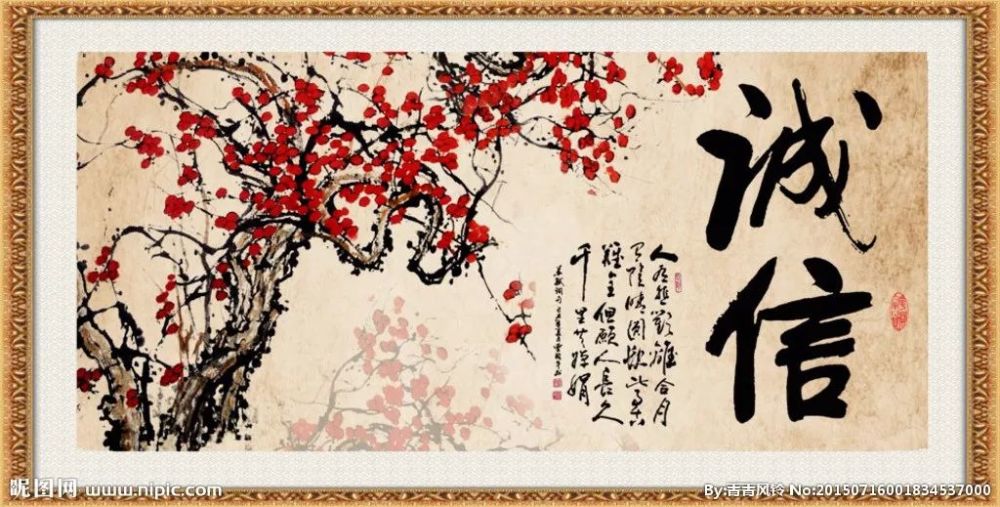 诚信
人有悲歡離合月
有陰晴圓缺此事古
難全但願人長久
千里共嬋娟
昵图网 www.nipic.com
By:青青风铃 No:20150716001834537000